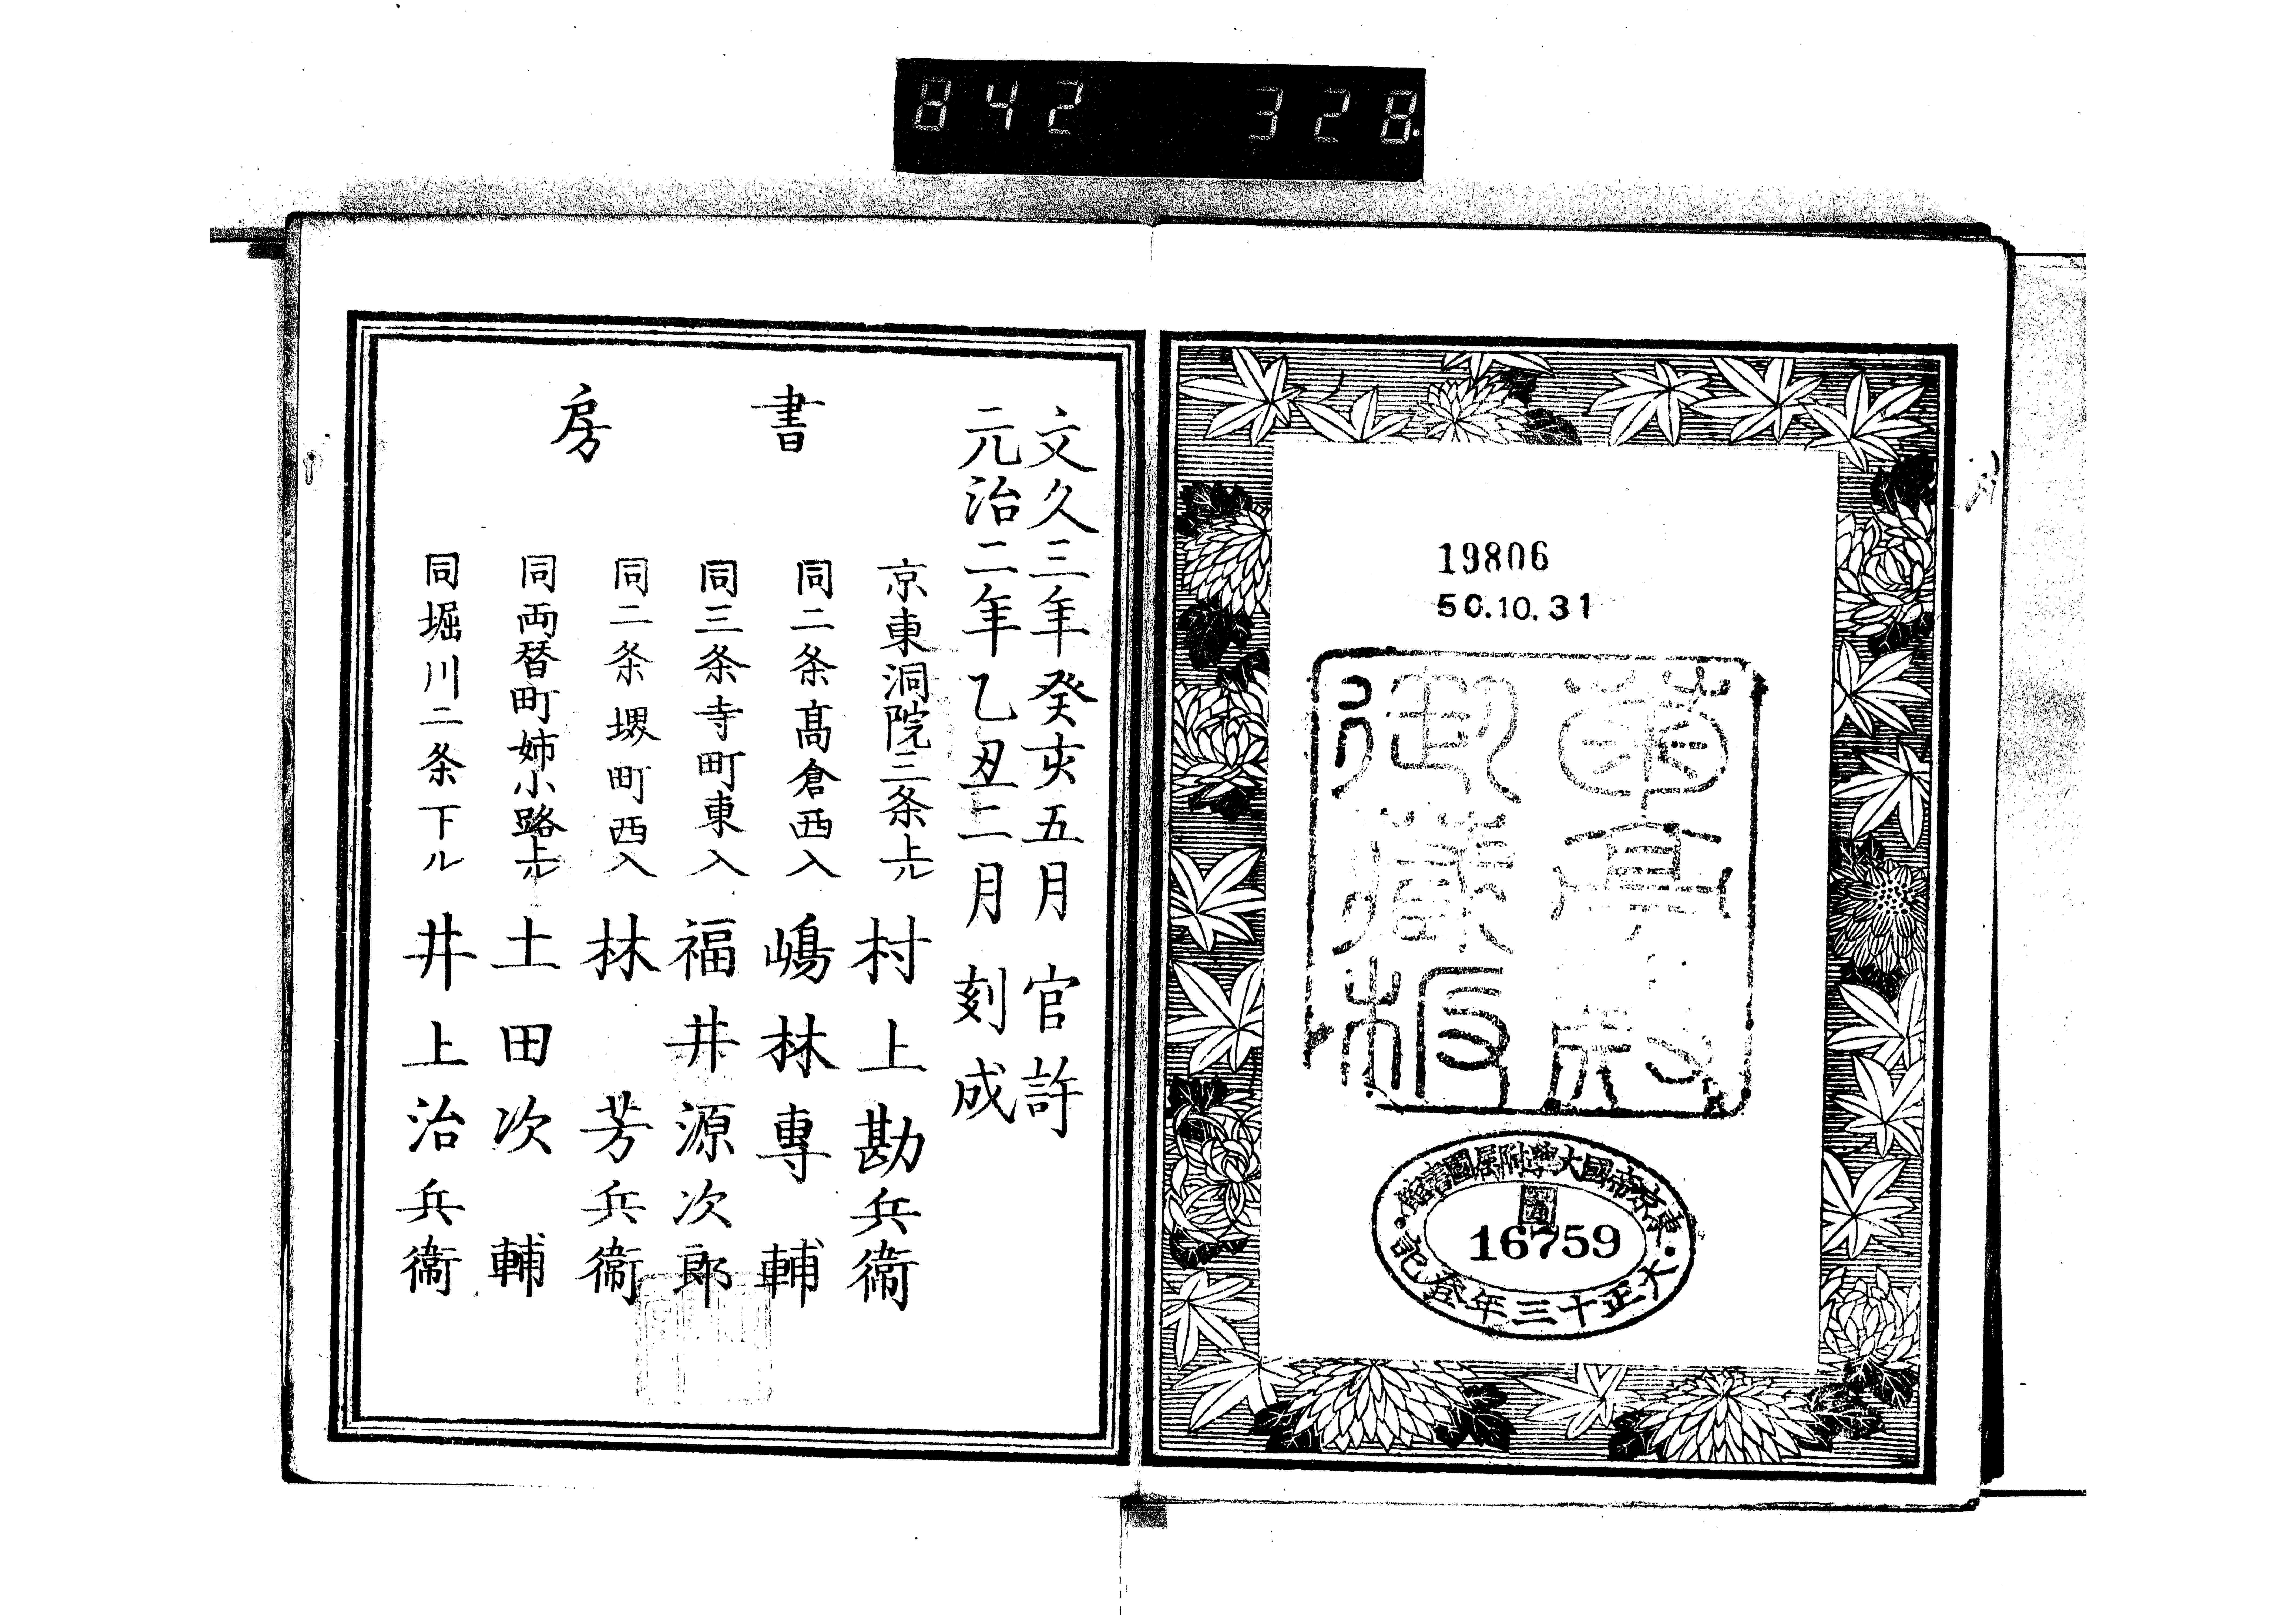 842 328.
19806
50.10.31
御蔵板
東京帝國大學附属圖書館
16759
大正十三年登記
文久三年癸亥五月官許
元治二年乙丑二月刻成
書房
京東洞院三条上ル 村上勘兵衞
同二条高倉西入 嶋林專輔
同三条寺町東入 福井源次郎
同二条堺町西入 林芳兵衞
同両替町姉小路上ル 土田次輔
同堀川二条下ル 井上治兵衞